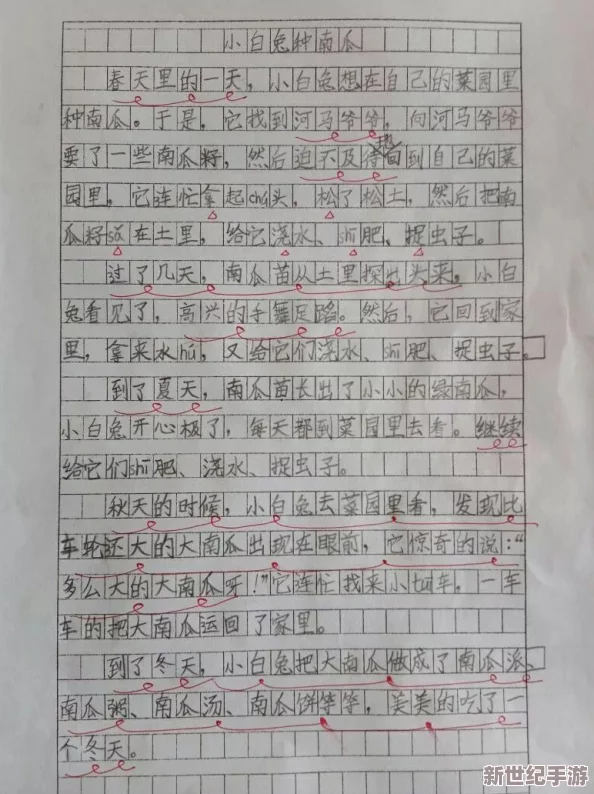 小白兔种南瓜
春天里的一天，小白兔想在自己的菜园里
种南瓜。于是，它找到河马爷爷，向河马爷爷
要了一些南瓜籽，然后迫不及待地回到自己的菜
园里，它连忙拿起chú头，松了松土，然后把南
瓜籽sǎ在土里，给它浇水、shī肥、捉虫子。
过了几天，南瓜苗从土里探出头来，小白
兔看见了，高兴的手舞足蹈。然后，它回到家
里，拿来水hú，又给它们浇水、shī肥、捉虫子。
到了夏天，南瓜苗长出了小小的绿南瓜，
小白兔开心极了，每天都到菜园里去看。继续
给它们shī肥、浇水、捉虫子。
秋天的时候，小白兔去菜园里看，发现比
车轮还大的大南瓜出现在眼前，它惊奇的说：“
多么大的大南瓜呀！”它连忙找来小tuī车，一车
车的把大南瓜运回了家里。
到了冬天，小白兔把大南瓜做成了南瓜派、
南瓜粥、南瓜汤、南瓜饼等等，美美的吃了一
个冬天。
新世纪手游